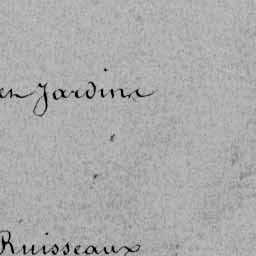 en Jardin
Ruisseaux